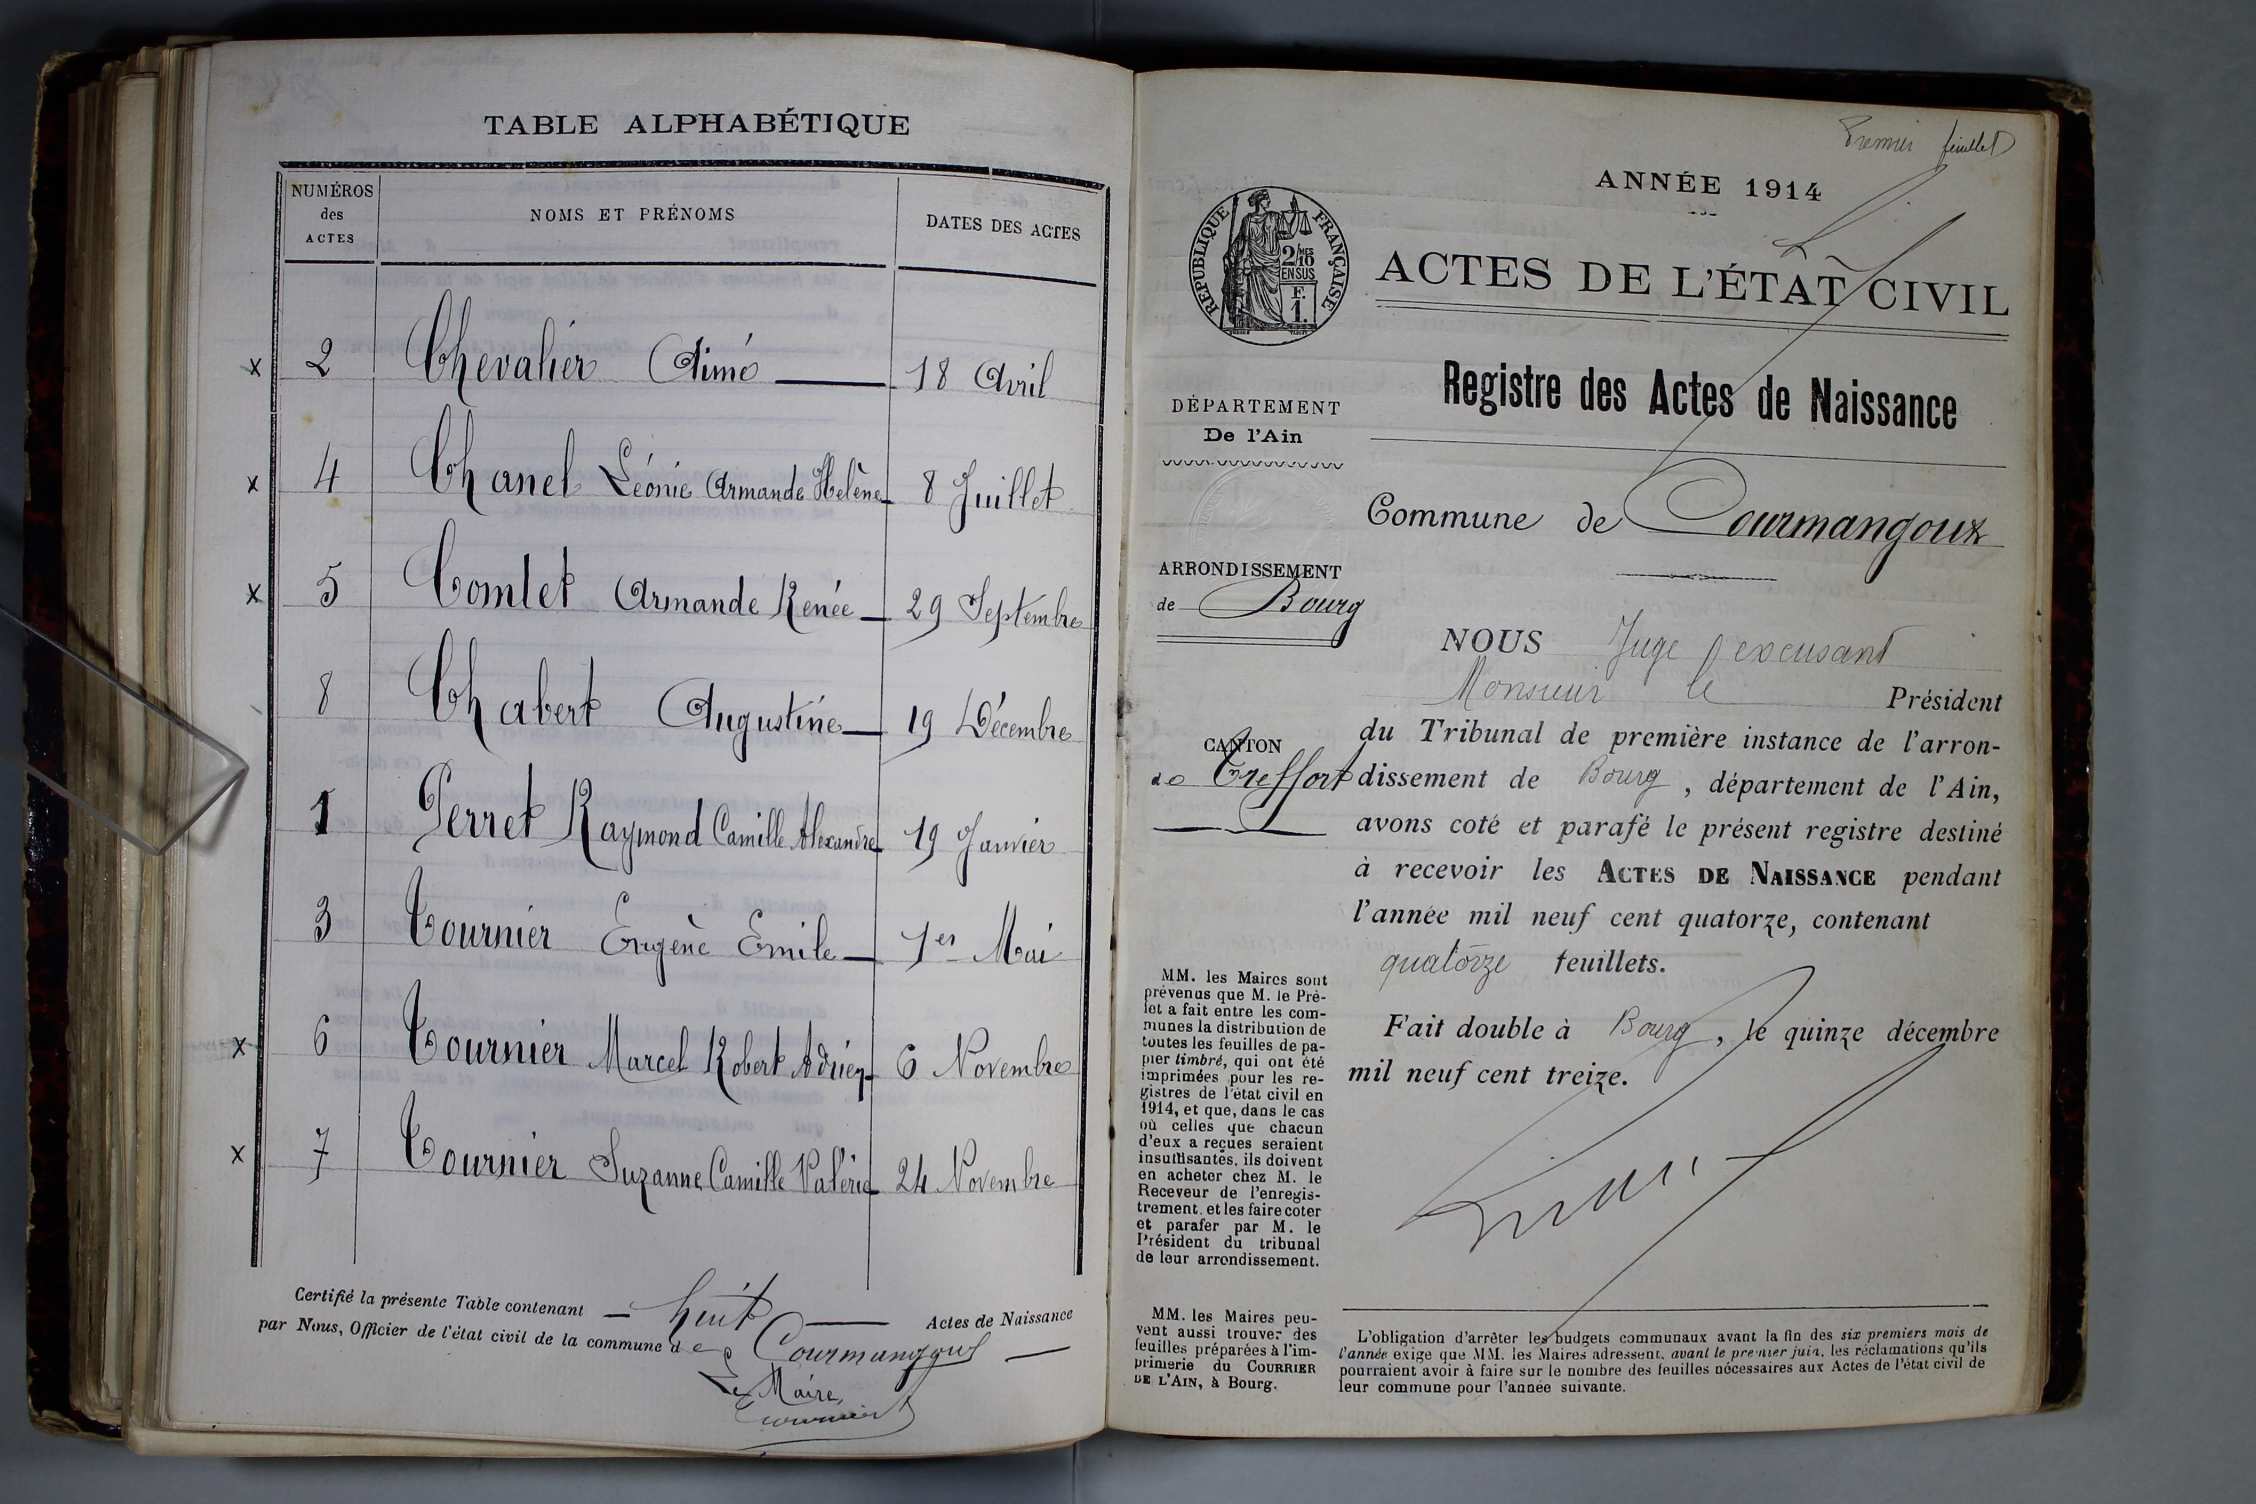 TABLE ALPHABÉTIQUE
NUMÉROS des ACTES
NOMS ET PRÉNOMS
DATES DES ACTES
x 2 Chevalier Aimé 18 Avril
x 4 Chanel Léonie Armande Helène 8 Juillet
x 5 Comtet Armande Renée 29 Septembre
8 Chabert Augustine 19 Décembre
1 Perret Raymond Camille Alexandre 19 Janvier
3 Tournier Eugène Emile 1er Mai
x 6 Tournier Marcel Robert Adrien 6 Novembre
x 7 Tournier Suzanne Camille Valérie 24 Novembre
Certifié la présente Table contenant huit Actes de Naissance
par Nous, Officier de l'état civil de la commune de Courmangoux
Le Maire,
Tournier
Premier feuillet
ANNÉE 1914
RÉPUBLIQUE FRANÇAISE
2/10 MES
EN SUS
F.
1.
ACTES DE L'ÉTAT CIVIL
Registre des Actes de Naissance
DÉPARTEMENT
De l'Ain
Commune de Courmangoux
ARRONDISSEMENT
de Bourg
CANTON
de Treffort
NOUS Juge excusant
Monsieur le Président
du Tribunal de première instance de l'arron-
dissement de Bourg, département de l'Ain,
avons coté et parafé le présent registre destiné
à recevoir les ACTES DE NAISSANCE pendant
l'année mil neuf cent quatorze, contenant
quatorze feuillets.
Fait double à Bourg, le quinze décembre
mil neuf cent treize.
MM. les Maires sont
prévenus que M. le Pré-
fet a fait entre les com-
munes la distribution de
toutes les feuilles de pa-
pier timbré, qui ont été
imprimées pour les re-
gistres de l'état civil en
1914, et que, dans le cas
où celles que chacun
d'eux a reçues seraient
insuffisantes, ils doivent
en acheter chez M. le
Receveur de l'enregis-
trement, et les faire coter
et parafer par M. le
Président du tribunal
de leur arrondissement.
MM. les Maires peu-
vent aussi trouver des
feuilles préparées à l'im-
primerie du COURRIER
DE L'AIN, à Bourg.
L'obligation d'arrêter les budgets communaux avant la fin des six premiers mois de
l'année exige que MM. les Maires adressent, avant le premier juin, les réclamations qu'ils
pourraient avoir à faire sur le nombre des feuilles nécessaires aux Actes de l'état civil de
leur commune pour l'année suivante.